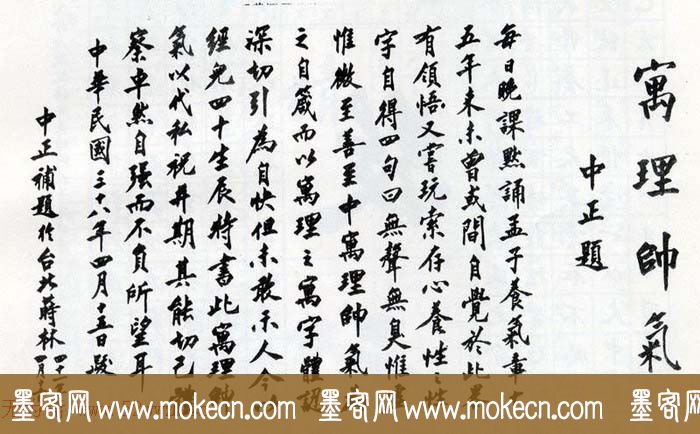 寓理帥氣
中正題
每日晚課默誦孟子養氣章十
五年来未曾或間自覺於此
有領悟又嘗玩索存心養性之性
字自得四句曰無聲無臭惟
惟微至善至中寓理帥氣
之自箴而以寓理之寓字體認
深切引為自快但未敢示人今
經兒四十生辰特書此寓理帥
氣以代私祝并期其能切己體
察卓然自强而不負所望耳
中華民國三十八年四月十五日
中正補題於台北蔣林
墨客网 www.mokecn.com 墨客网 www.mokecn.com 墨客网